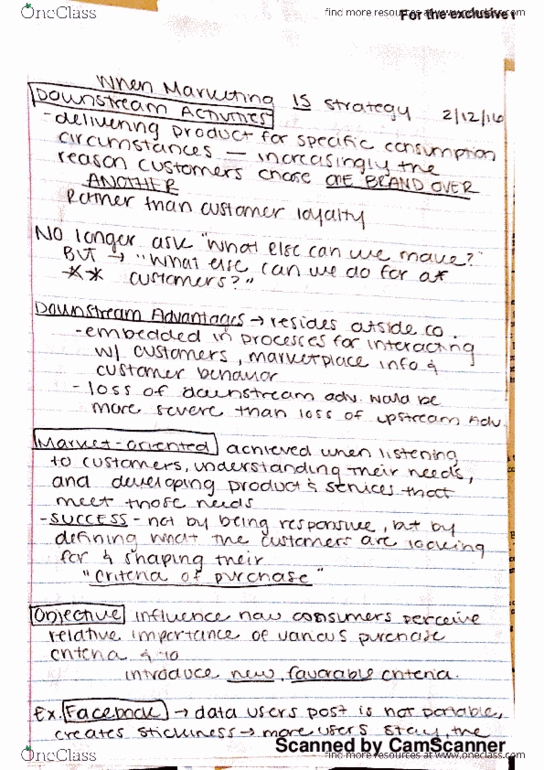 OneClass
find more resources at www.oneclass.com
For the exclusive
When Marketing IS strategy 2/12/16
Downstream Activities
-delivering product for specific consumption
circumstances — increasingly the
reason customers chose ONE BRAND OVER
ANOTHER
Rather than customer loyalty
NO longer ask "what else can we make?"
BUT → "what else can we do for our
** customers?"
Downstream Advantages → resides outside co.
-embedded in processes for interacting
w/ customers, marketplace info &
customer behavior
- loss of downstream adv. would be
more severe than loss of upstream Adv.
Market-oriented achieved when listening
to customers, understanding their needs,
and developing product & services that
meet those needs
-SUCCESS - not by being responsive, but by
defining what the customers are looking
for & shaping their
"criteria of purchase"
Objective influence how consumers perceive
relative importance of various purchase
criteria & to
introduce new, favorable criteria.
Ex. Facebook → data users post is not portable,
creates stickiness → more users stay, the
Scanned by CamScanner
OneClass
find more resources at www.oneclass.com